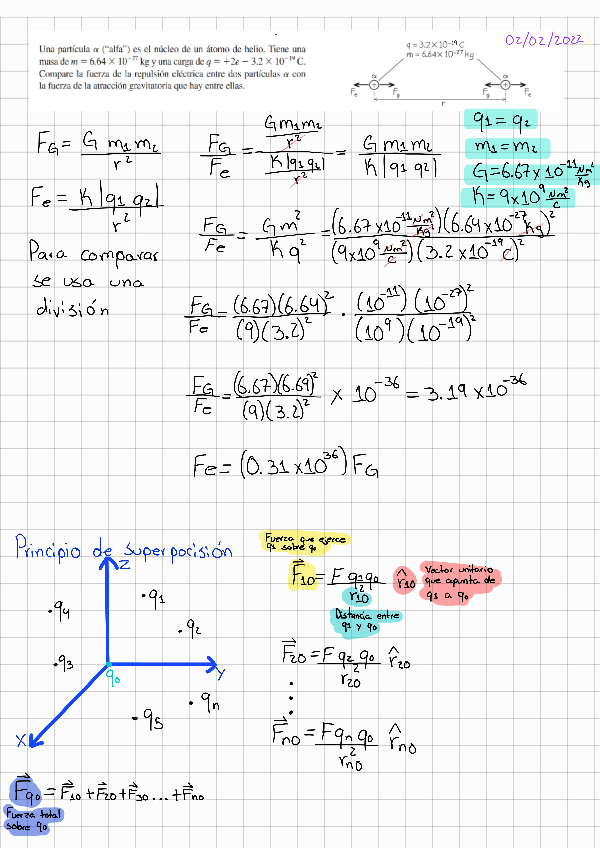 02/02/2022
Una partícula α ("alfa") es el núcleo de un átomo de helio. Tiene una
masa de m = 6.64 × 10⁻²⁷ kg y una carga de q = +2e = 3.2 × 10⁻¹⁹ C.
Compare la fuerza de la repulsión eléctrica entre dos partículas α con
la fuerza de la atracción gravitatoria que hay entre ellas.
q = 3.2 × 10⁻¹⁹ C
m = 6.64 × 10⁻²⁷ kg
α α
Fe Fg Fg Fe
r
q1 = q2
m1 = m2
G = 6.67 × 10⁻¹¹ Nm²/Kg
K = 9 × 10⁹ Nm²/C
FG = G m1 m2 / r²
Fe = K |q1 q2| / r²
Para comparar
se usa una
división
FG/Fe = (G m1 m2 / r²) / (K |q1 q2| / r²) = G m1 m2 / K |q1 q2|
FG/Fe = G m² / K q² = (6.67 × 10⁻¹¹ Nm²/Kg²)(6.64 × 10⁻²⁷ Kg)² / (9 × 10⁹ Nm²/C)(3.2 × 10⁻¹⁹ C)²
FG/Fe = (6.67)(6.64)² / (9)(3.2)² · (10⁻¹¹)(10⁻²⁷)² / (10⁹)(10⁻¹⁹)²
FG/Fe = (6.67)(6.69)² / (9)(3.2)² × 10⁻³⁶ = 3.19 × 10⁻³⁶
Fe = (0.31 × 10³⁶) FG
Principio de superpocisión
Z
Y
X
q0
q1
q2
q3
q4
q5
qn
Fuerza que ejerce
q1 sobre q0
F⃗10 = F q1 q0 / r²10 r̂10
Vector unitario
que apunta de
q1 a q0
Distancia entre
q1 y q0
F⃗20 = F q2 q0 / r²20 r̂20
F⃗n0 = F qn q0 / r²n0 r̂n0
F⃗q0 = F⃗10 + F⃗20 + F⃗30 ... + F⃗n0
Fuerza total
sobre q0